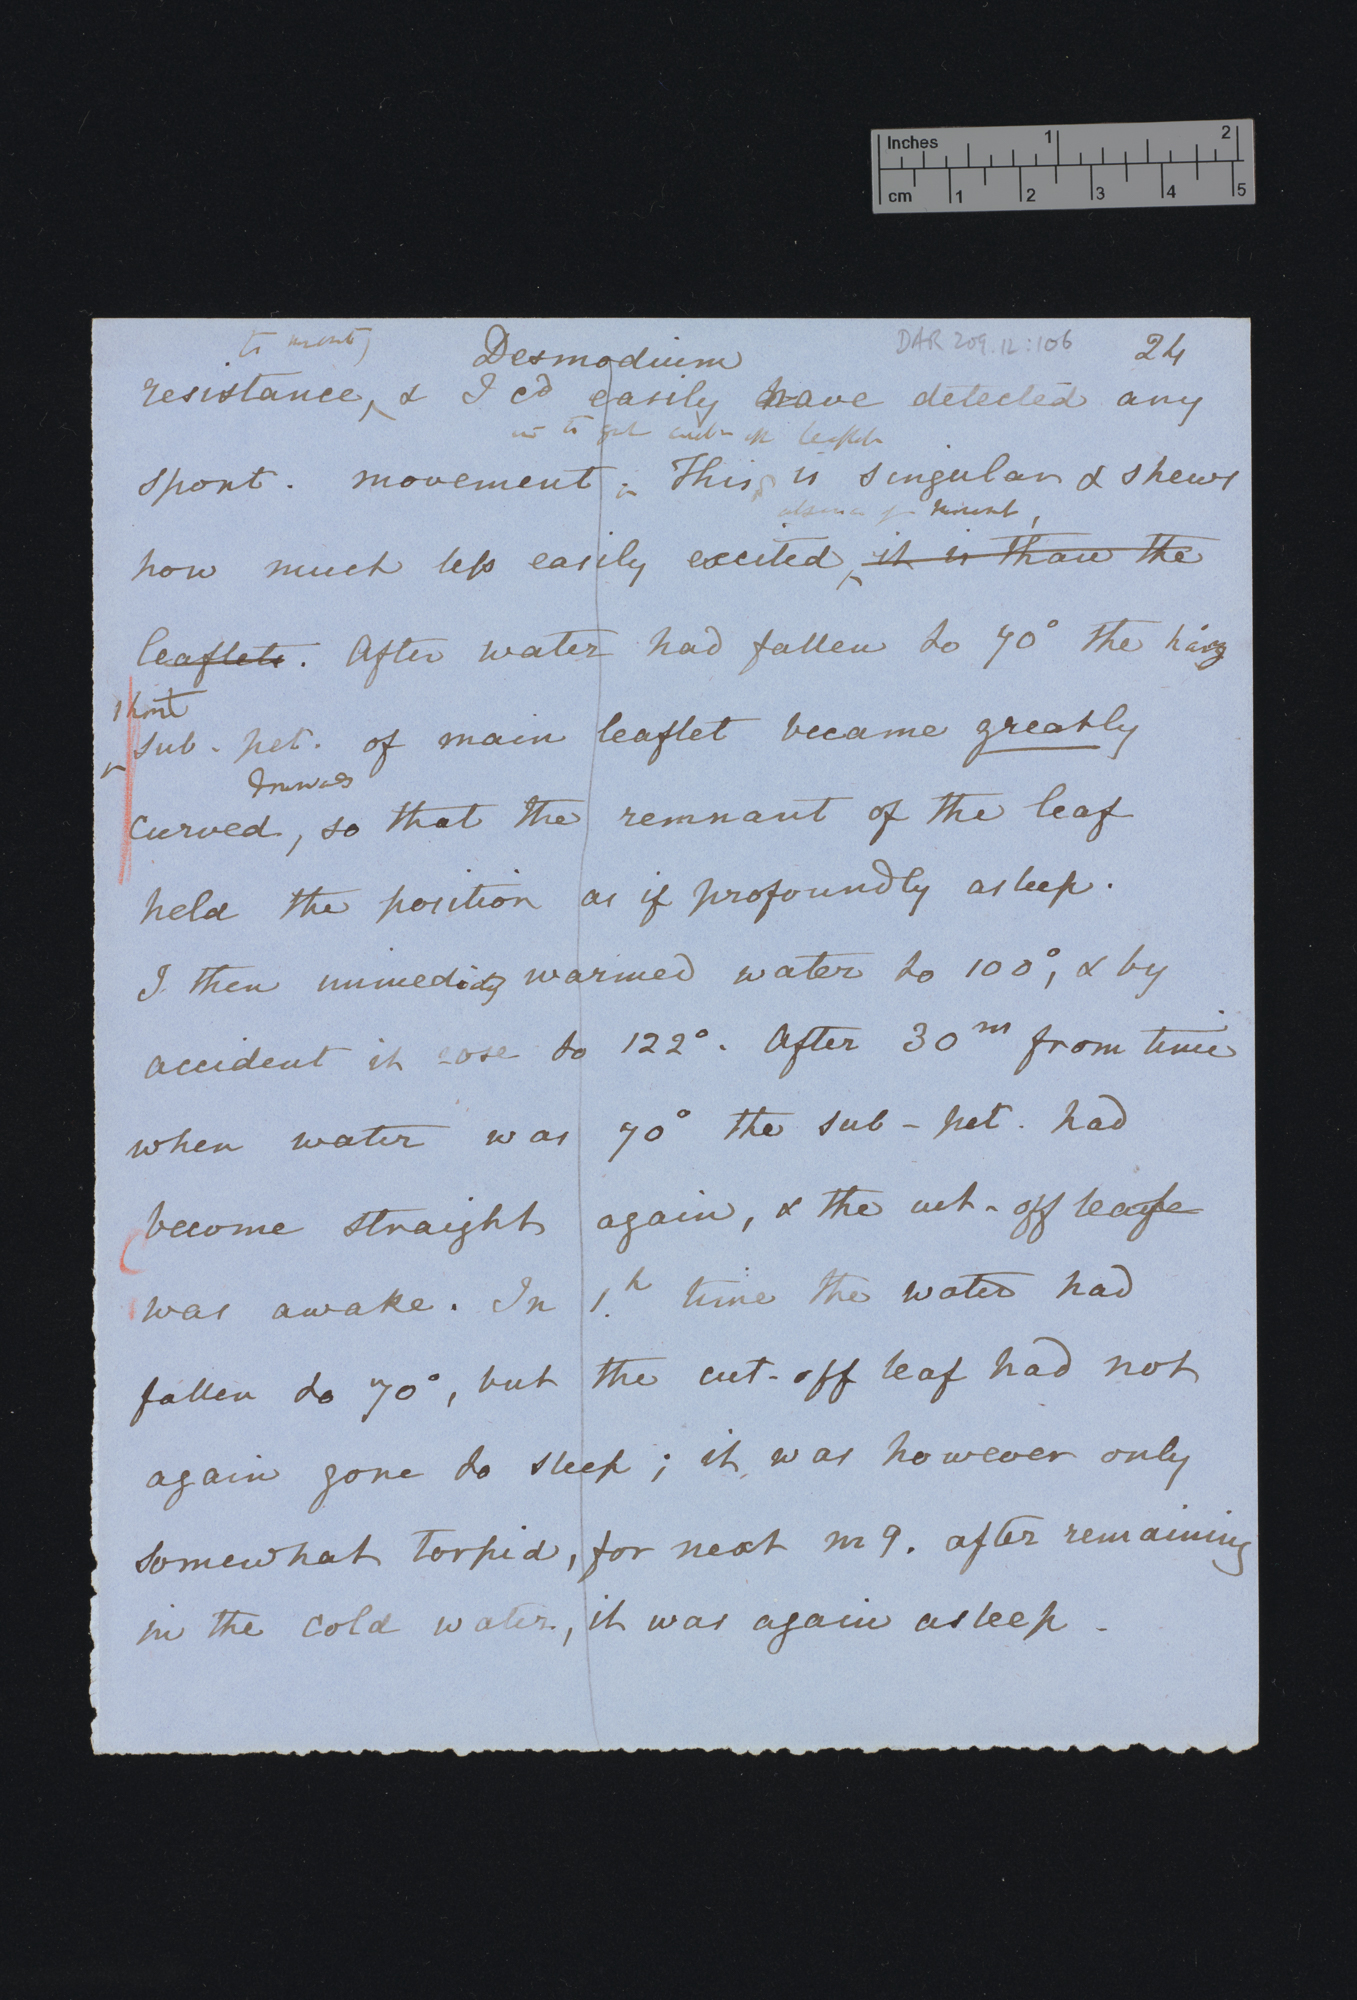 Inches 1 2
cm 1 2 3 4 5
Desmodium DAR 209.12:106 24
resistance, & I cd easily have detected any
spont. movement. This is singular & shews
how much less easily excited, it is than the
leaflets. After water had fallen to 70° the
sub-pet. of main leaflet became greatly
curved, so that the remnant of the leaf
held the position as if profoundly asleep.
I then immediatly warmed water to 100°, & by
accident it rose to 122°. After 30m from time
when water was 70° the sub-pet. had
become straight again, & the cut-off leaf
was awake. In 1.h time the water had
fallen to 70°, but the cut-off leaf had not
again gone to sleep; it was however only
somewhat torpid, for next mg. after remaining
in the cold water, it was again asleep.